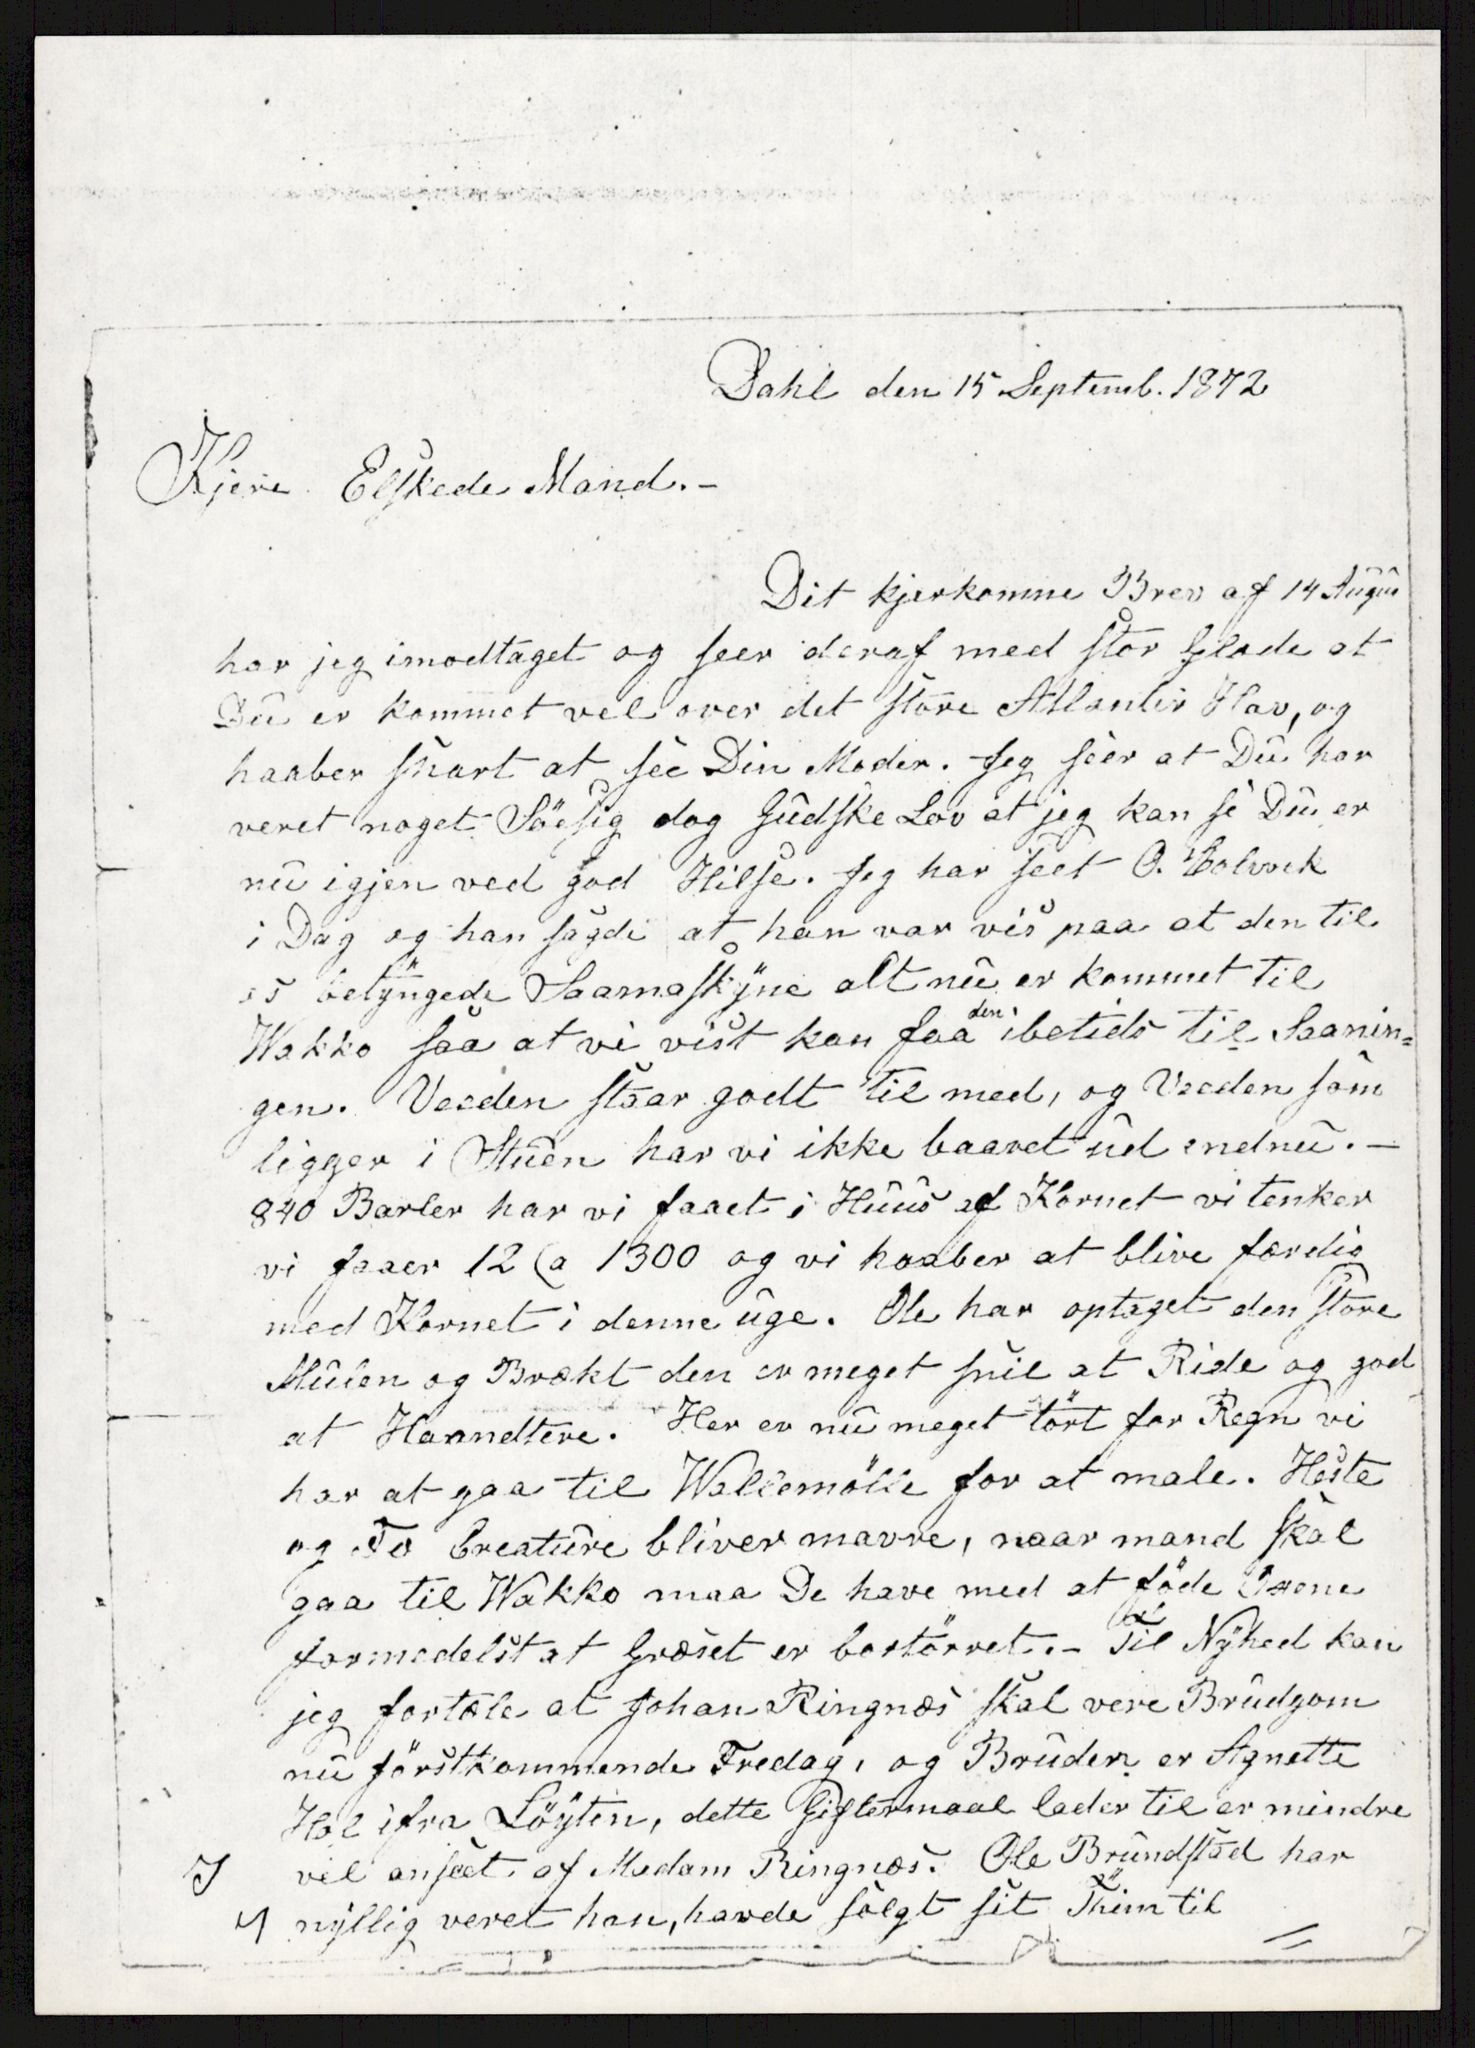 Dahl den 15 Septemb. 1872
Kjere Elskede Mand.-
Dit kjerkomne Brev af 14 Augus
har jeg imodtaget og seer deraf med stor Glede at
Du er kommet vel over det store Atlantir Hav, og
haaber snart at see Din Moder. Jeg seer at Du har
veret noget Söesig dog Gudske Lov at jeg kan se Du er
nu igjen ved god Hilse. Jeg har seet O. Colvick
i Dag og han sagde at han var vis paa at den til
os betyngede Saamaskyne alt nu er kommet til
Wakko saa at vi vist kan faa den ibetids til Saanin=
gen. Veeden staar godt til med, og Veeden som
ligger i Stuen har vi ikke baaret ud endnu. -
840 Barler har vi faaet i Huus af Kornet vi tenker
vi faaer 12 (a 1300 og vi haaber at blive færdig
med Kornet i denne uge. Ole har optaget den store
Mulen og Brækt den er meget snil at Ride og god
at Haandtere. Her er nu meget tört for Regn vi
har at gaa til Wallemölle for at male. Heste
og Fe Creature bliver mavre, naar mand skal
gaa til Wakko maa De have med at föde Oxene
formedelst at Græset er bortörret. - Til Nyhed kan
jeg fortæle at Johan Ringnæs skal vere Brudgom
nu förstkommende Fredag, og Bruden er Agnette
Hol ifra Löyten, dette Giftermaal lader til er mindre
vel anseet af Madam Ringnæs. Ole Brundstad har
nyllig veret han, havde solgt sit Thim til